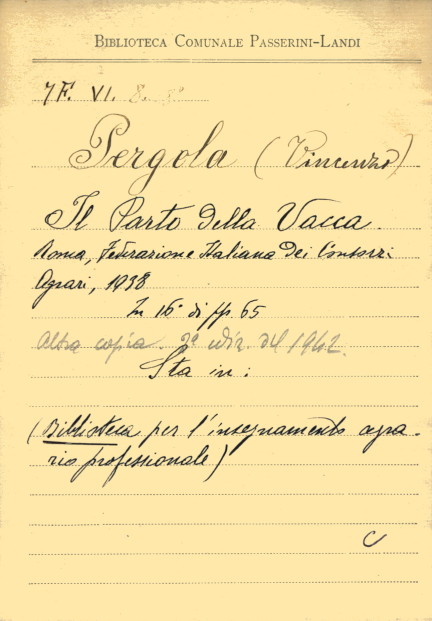 BIBLIOTECA COMUNALE PASSERINI-LANDI
7F. VI. 8. 8°
Pergola (Vincenzo)
Il Parto della Vacca.
Roma, Federazione Italiana dei Consorzi
Agrari, 1938
In 16° di pp. 65
Altra copia. 2ª ediz. del 1942.
Sta in:
(Biblioteca per l'insegnamento agra-
rio professionale)
C